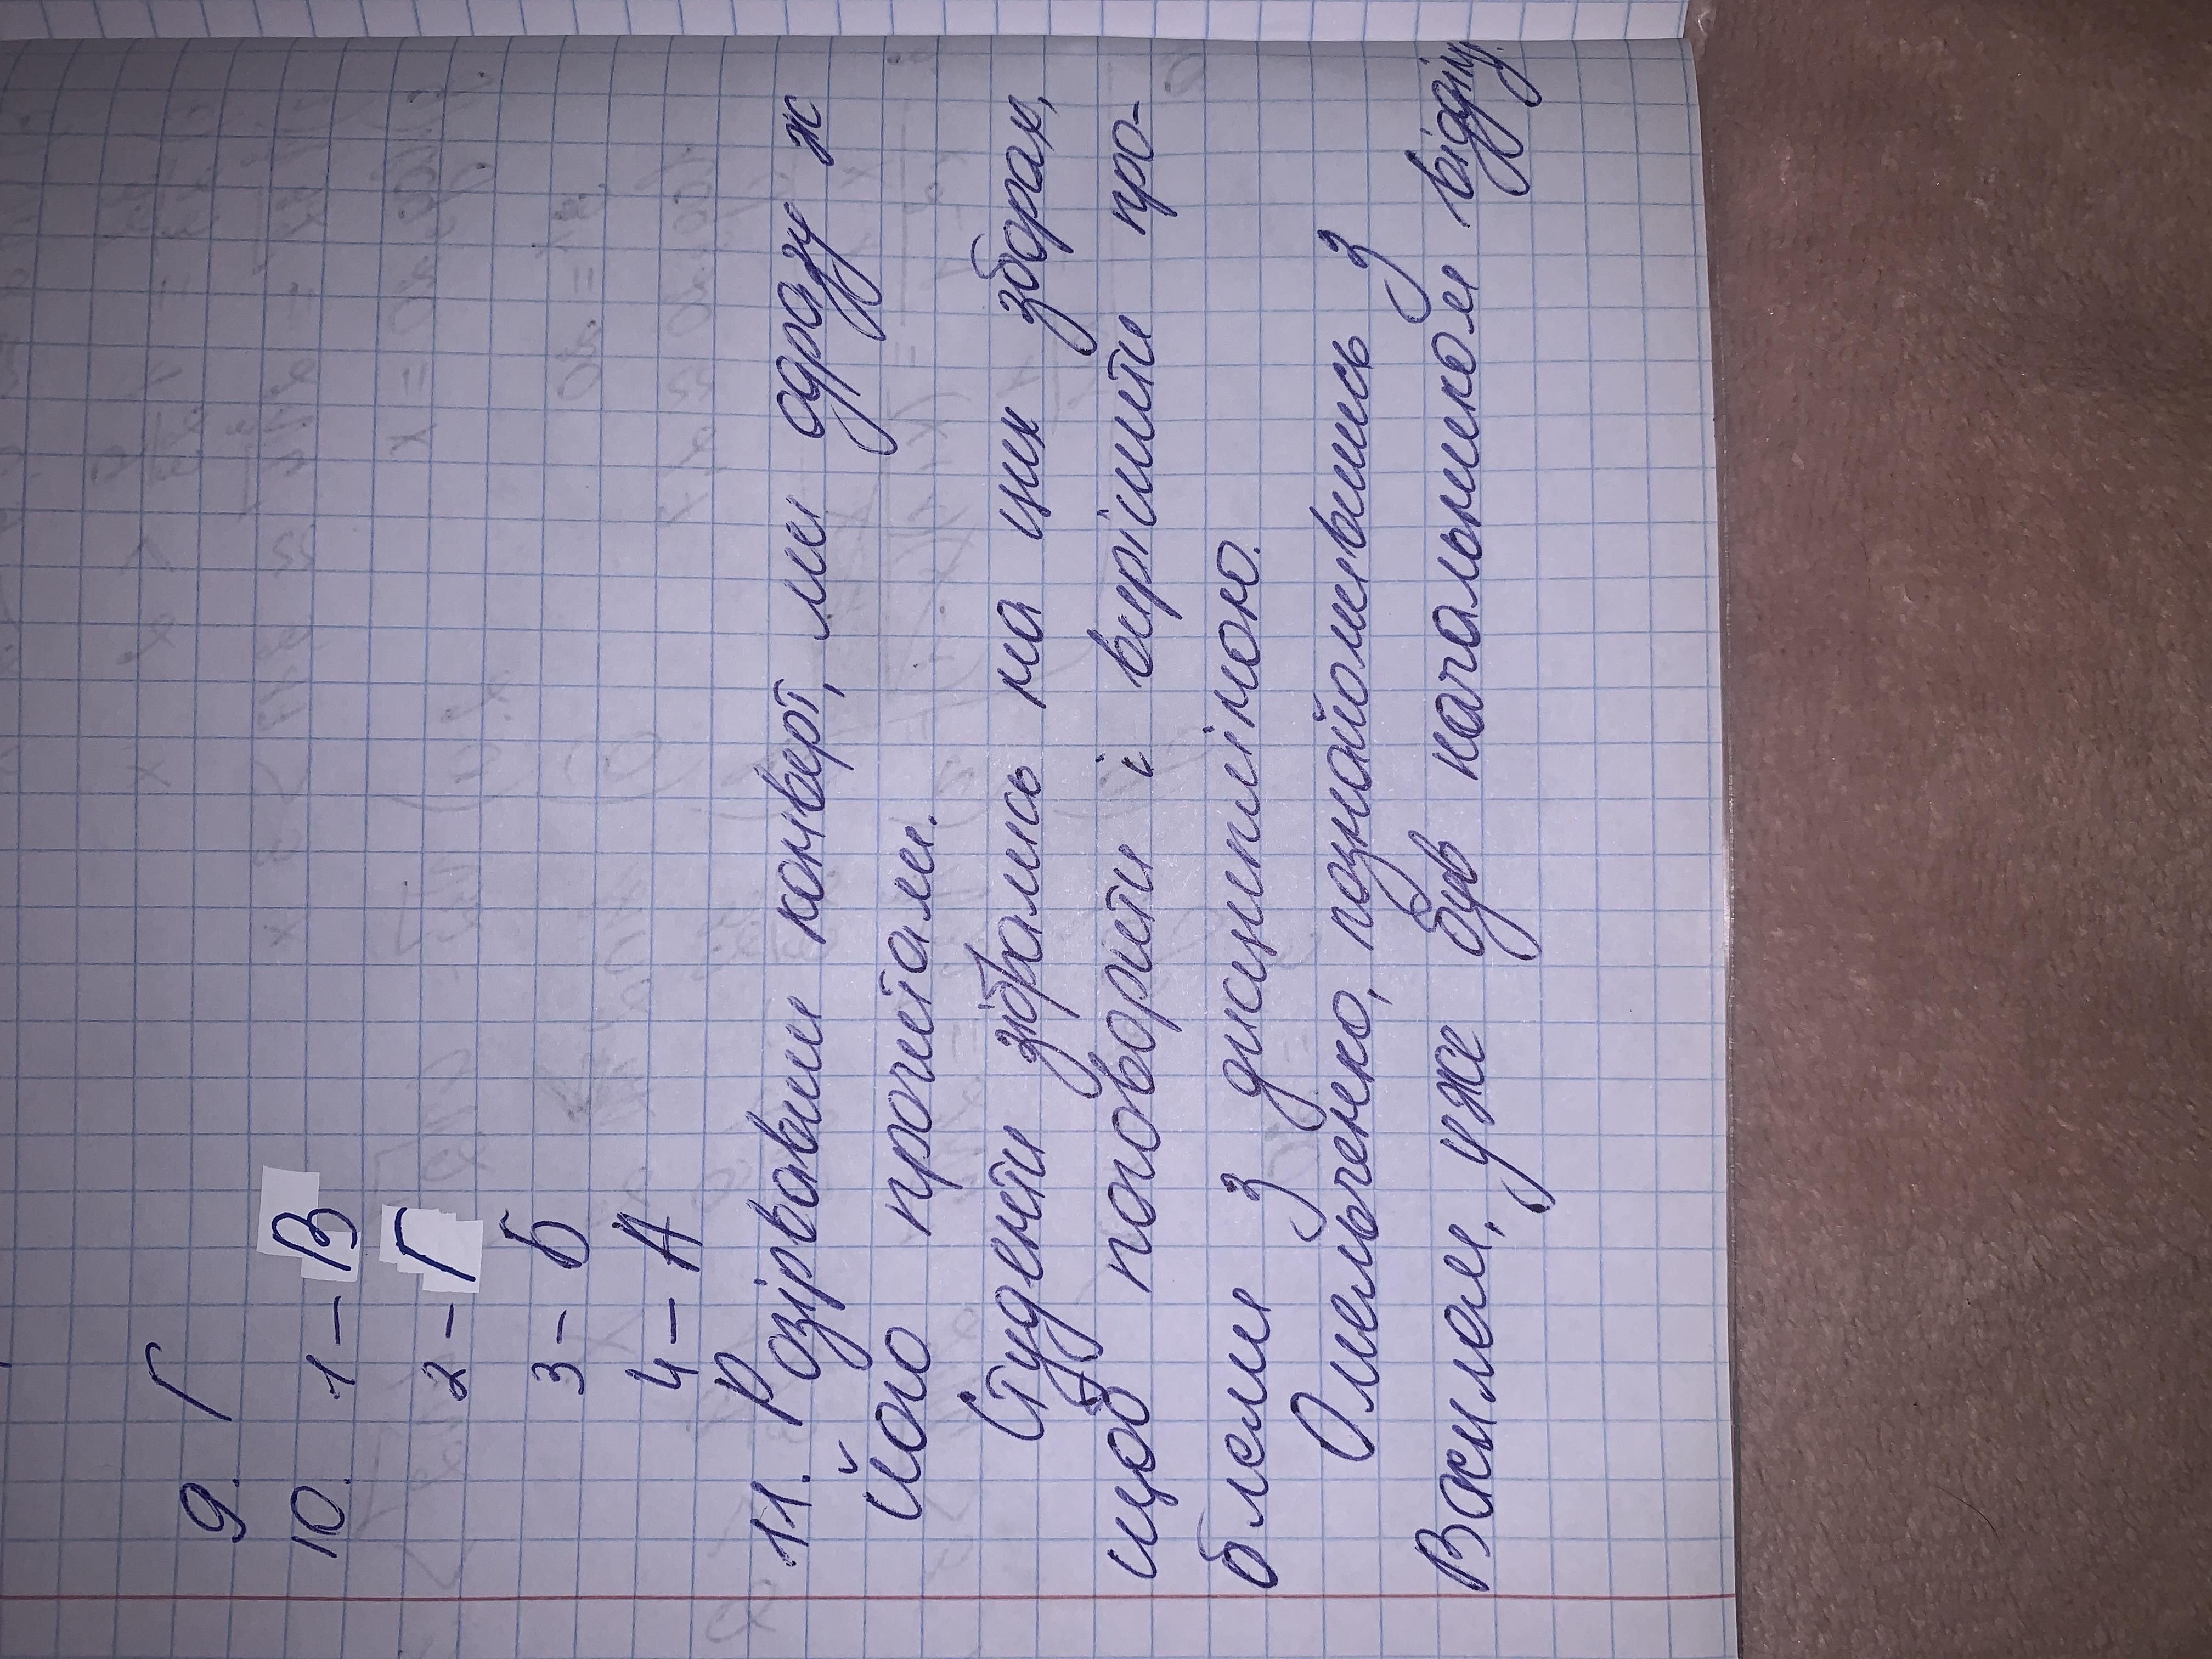 9. Г
10. 1 – В
2 – Г
3 – Б
4 – А
11. Розірвавши конверт, ми одразу ж
його прочитали.
Студенти зібрались на цих зборах,
щоб поворити і вирішити про-
блеми з дисципліною.
Омельченко, познайомившись з
Василем, уже був начальником відділу.